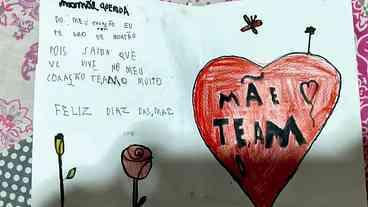 MAMÃE QUERIDA
DO MEU CORAÇÃO EU
TE DOU DE MONTÃO
POIS SAIBA QUE
VC VIVI NO MEU
CORAÇÃO TE AMO MUITO
FELIZ DIAZ DAS, MAE
MÃE
TEAM
O